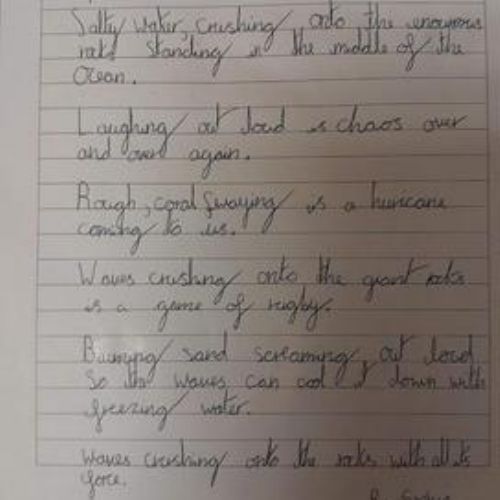 Salty water, crushing onto the enormous
raks standing in the middle of the
Ocean.
Laughing out loud is chaos over
and over again.
Rough, coral swaying is a huricane
coming to us.
Waves crushing onto the giant roks
is a game of rugby.
Burning sand screaming out loud
so the waves can cool it down with
freezing water.
Waves crushing onto the roks with all its
force.